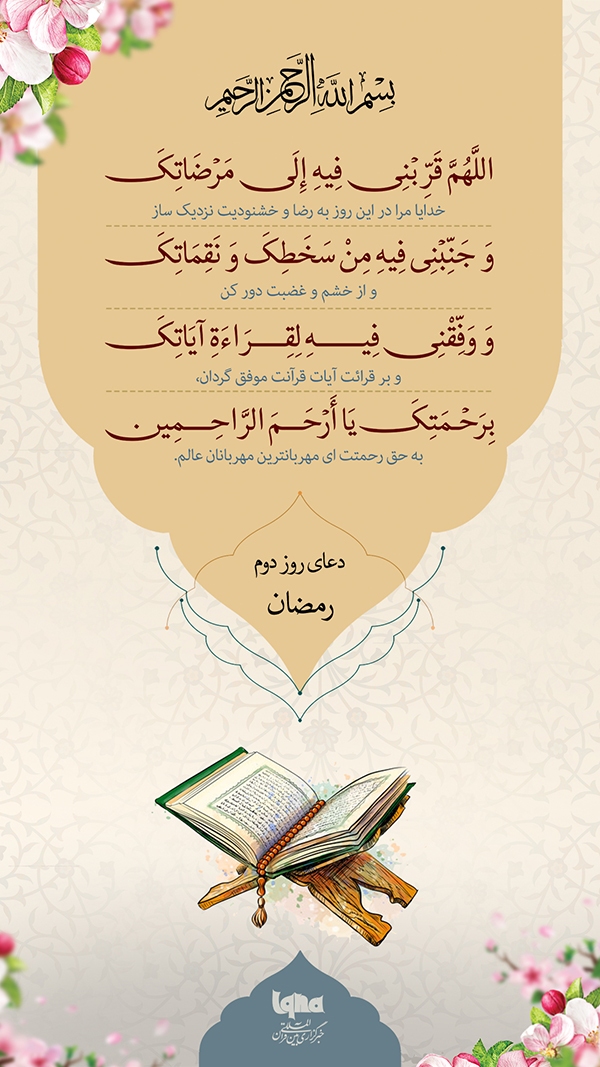 بِسْمِ اللَّهِ الرَّحْمَنِ الرَّحِيمِ
اللَّهُمَّ قَرِّبْنِی فِیهِ إِلَی مَرْضَاتِکَ
خدایا مرا در این روز به رضا و خشنودیت نزدیک ساز
وَ جَنِّبْنِی فِیهِ مِنْ سَخَطِکَ وَ نَقِمَاتِکَ
و از خشم و غضبت دور کن
وَ وَفِّقْنِی فِیهِ لِقِرَاءَةِ آیَاتِکَ
و بر قرائت آیات قرآنت موفق گردان،
بِرَحْمَتِکَ یَا أَرْحَمَ الرَّاحِمِین.
به حق رحمتت ای مهربانترین مهربانان عالم.
دعای روز دوم
رمضان
iqna
خبرگزاری بین المللی قرآن